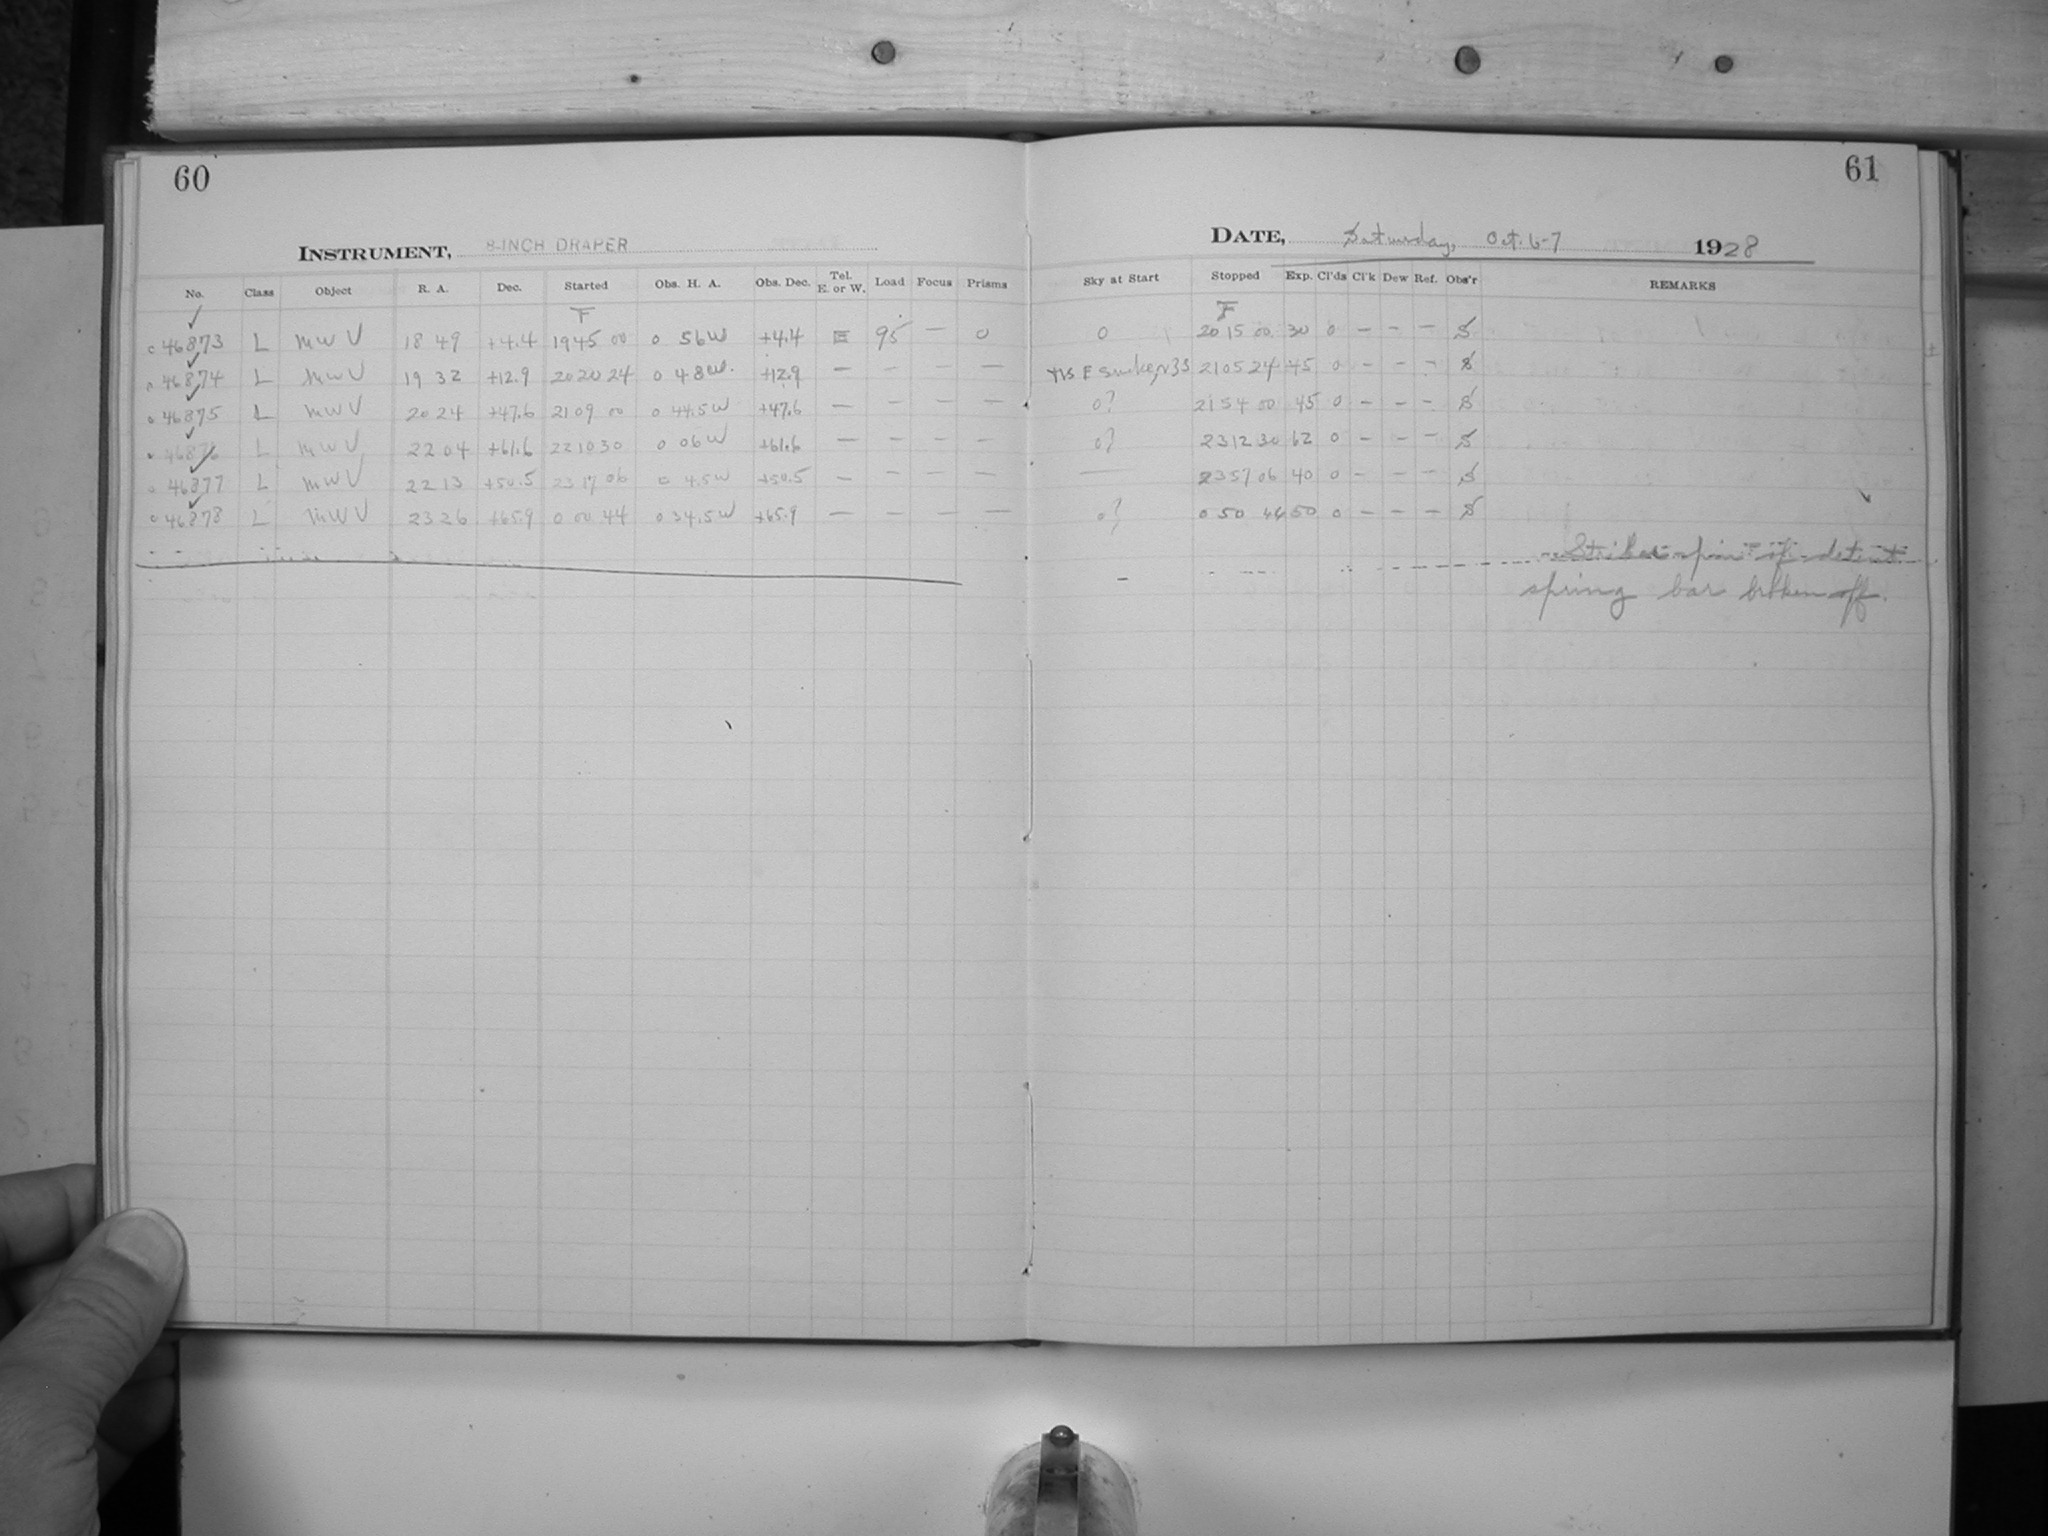 60
61
INSTRUMENT, 8-INCH DRAPER
DATE, Saturday, Oct. 6-7 1928
No. Class Object R. A. Dec. Started Obs. H. A. Obs. Dec. Tel. E. or W. Load Focus Prisms Sky at Start Stopped Exp. Cl'ds Cl'k Dew Ref. Obs'r REMARKS
F F
46873 L MWV 18 49 +4.4 19 45 00 0 56 W +4.4 E 95 — 0 0 20 15 00 30 0 — — — S
46874 L MWV 19 32 +12.9 20 20 24 0 48 W. +12.9 — — — — 21 05 24 45 0 — — — S
46875 L MWV 20 24 +47.6 21 09 00 0 44.5 W +47.6 — — — — 0? 21 54 00 45 0 — — — S
46876 L MWV 22 04 +61.6 22 10 30 0 06 W +61.6 — — — — 0? 23 12 30 62 0 — — — S
46877 L MWV 22 13 +50.5 23 17 06 4.5 W +50.5 — — — — — 23 57 06 40 0 — — — S
46878 L MWV 23 26 +65.9 0 00 44 0 34.5 W +65.9 — — — — 0? 0 50 44 50 0 — — — S
of detent
spring bar broken off.